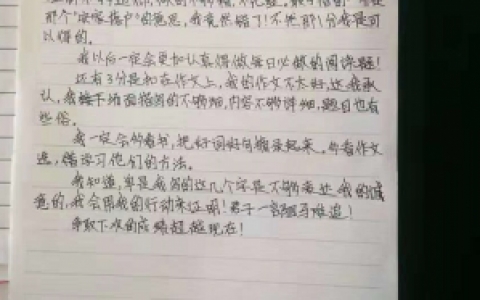 那个"定语后户"的意思,我竟然错了!不然那1分我是可
以得的。
我以后一定会更加认真得做每日必做的阅读题!
还有3分是扣在作文上,我的作文不太好,这我承
认,我下笔描写的不够细,内容不够详细,题目也有
些俗。
我一定会多看书,把好词好句摘录起来,多看作文
选,学习他们的方法。
我知道,单是我写的这几个字是不够表达我的诚
意的,我会用我的行动来证明!君子一言驷马难追!
争取下次的成绩超越现在!